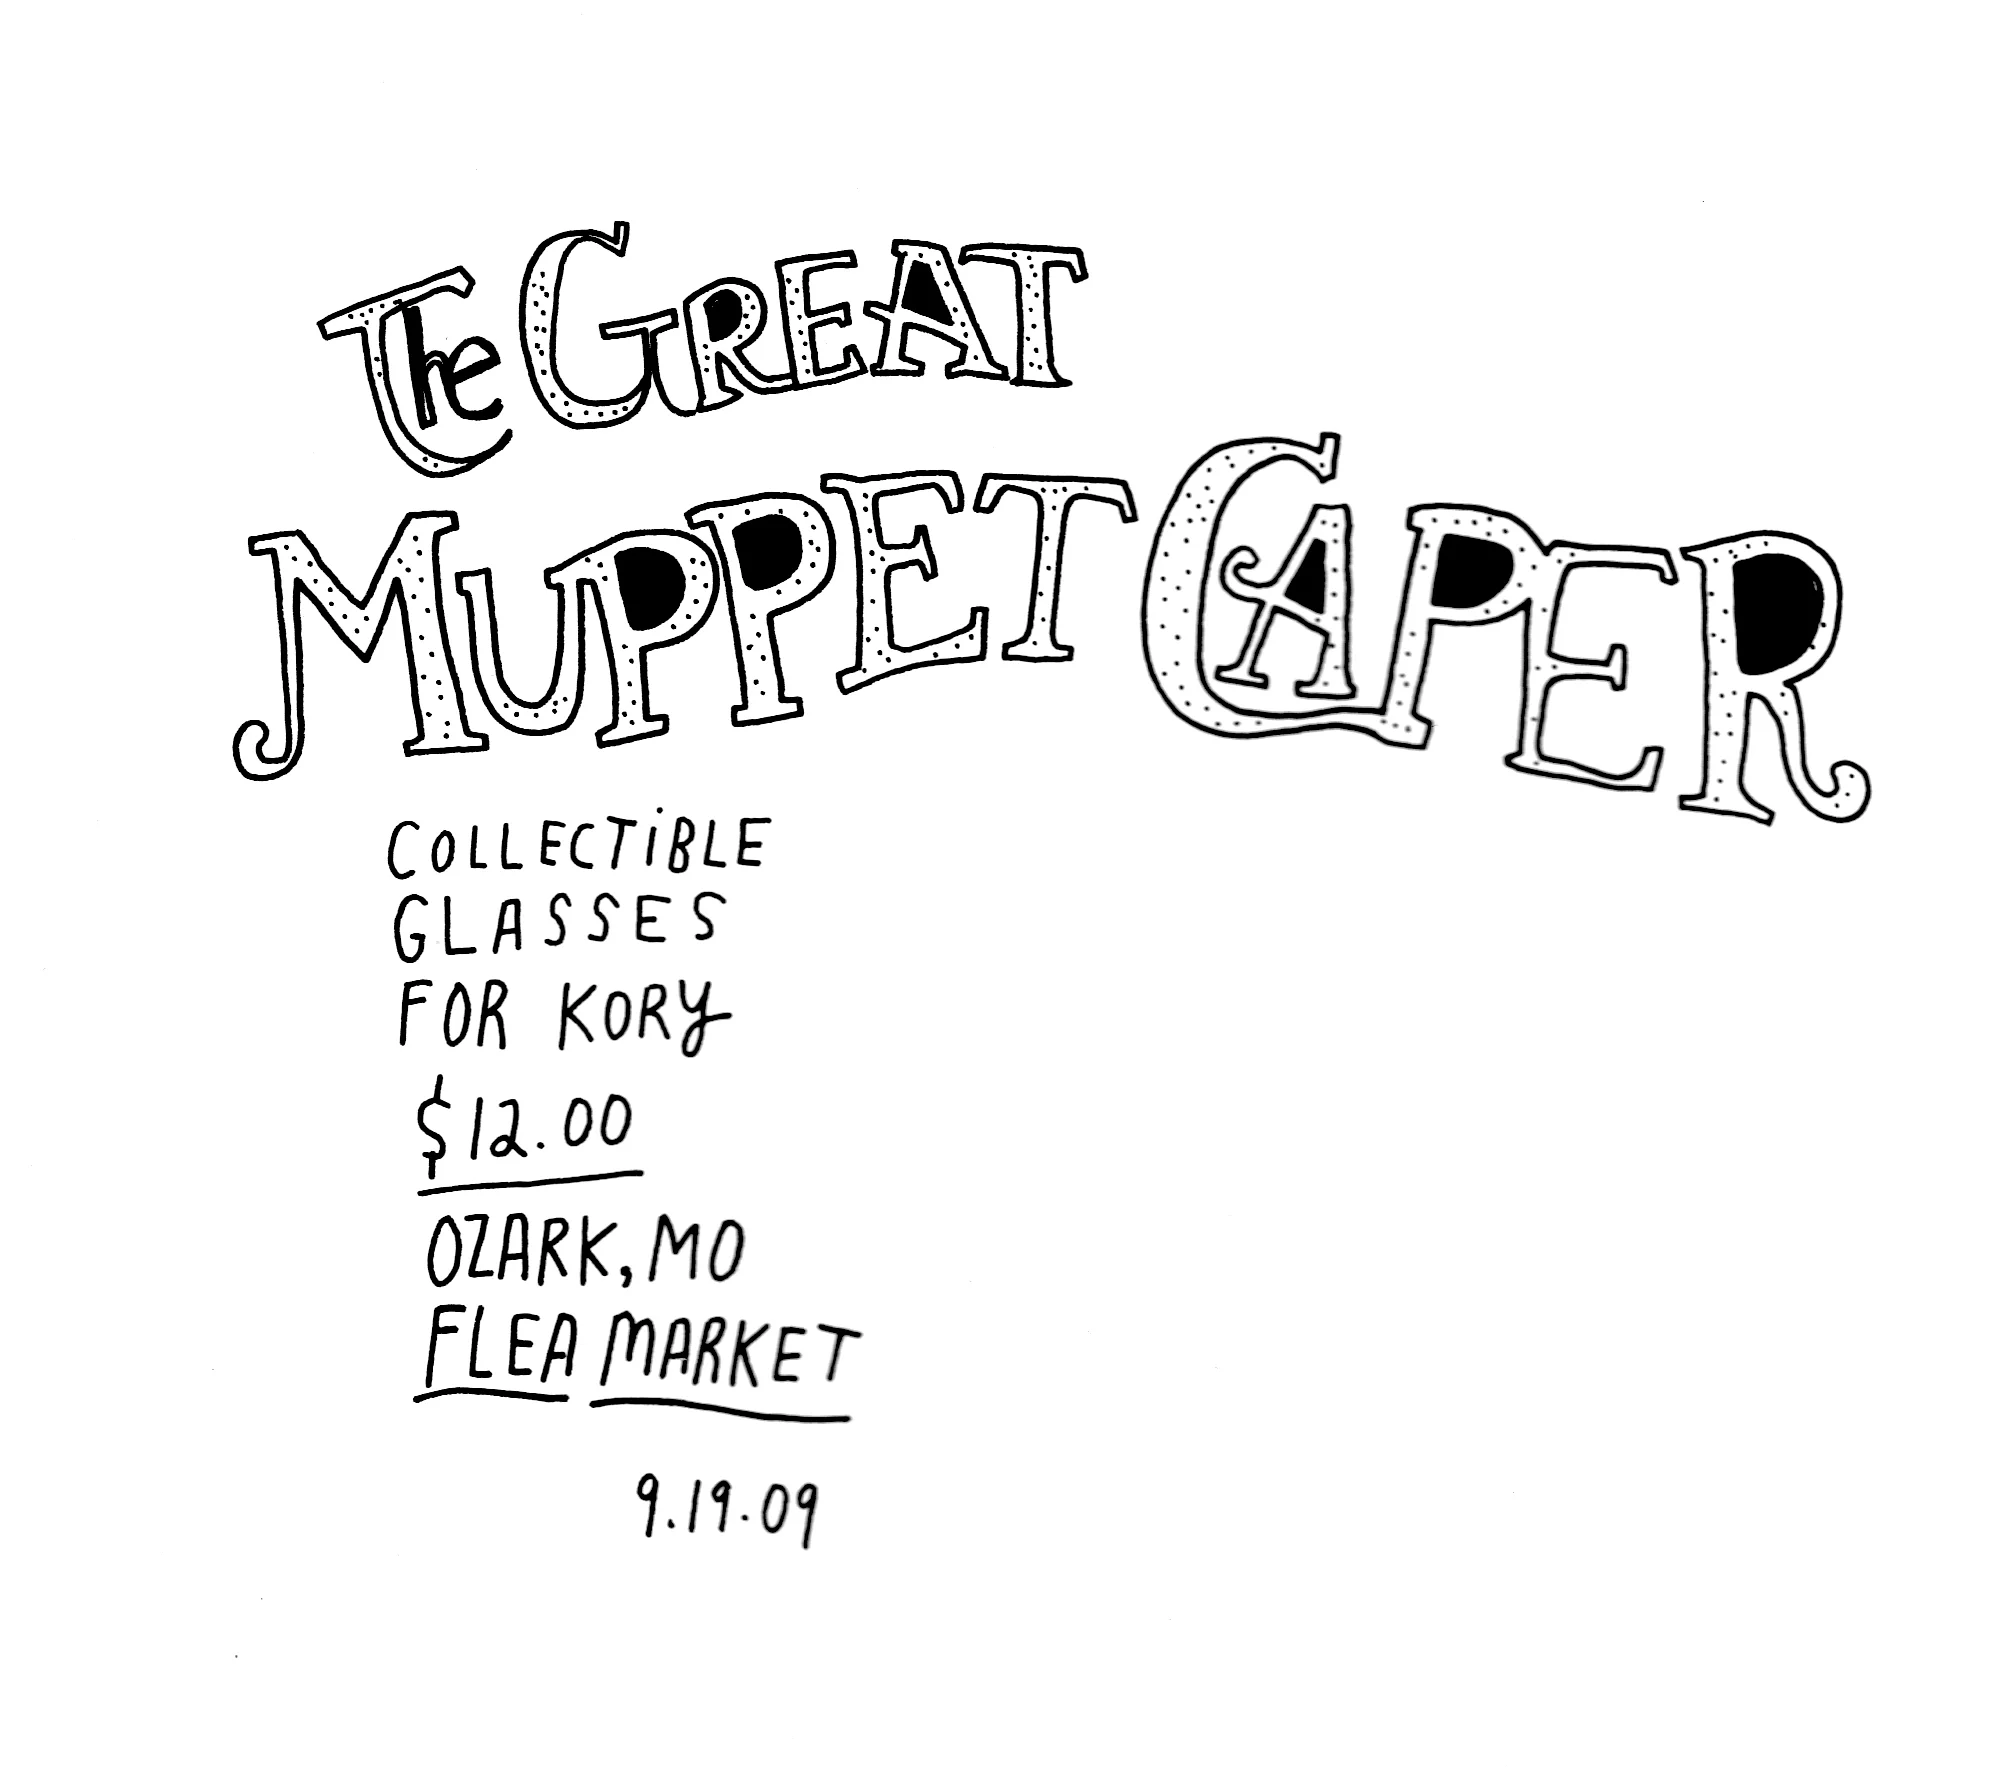 The GREAT
MUPPET CAPER
COLLECTiBLE
GLASSES
FOR KORY
$12.00
OZARK, MO
FLEA MARKET
9.19.09